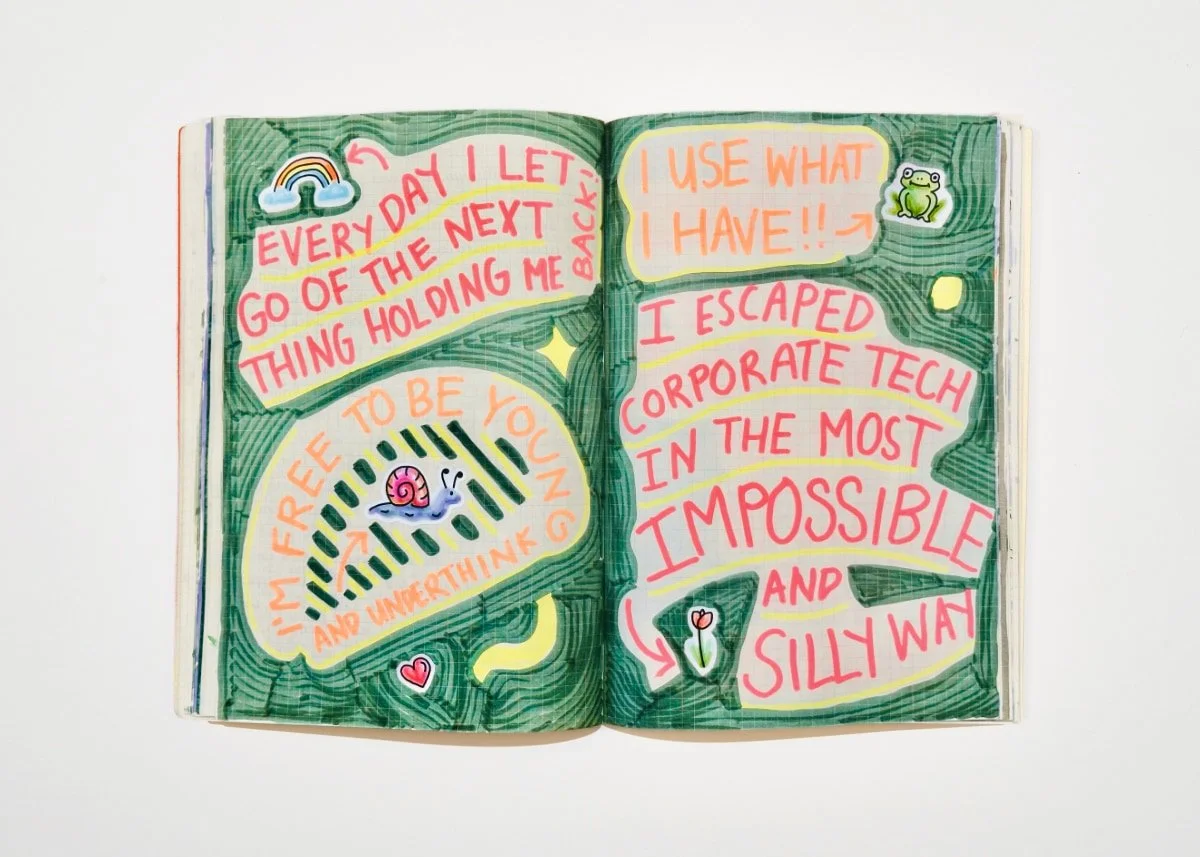 EVERY DAY I LET
GO OF THE NEXT
THING HOLDING ME
BACK!
I'M FREE TO BE YOUNG
AND UNDERTHINK
I USE WHAT
I HAVE!!
I ESCAPED
CORPORATE TECH
IN THE MOST
IMPOSSIBLE
AND
SILLY WAY